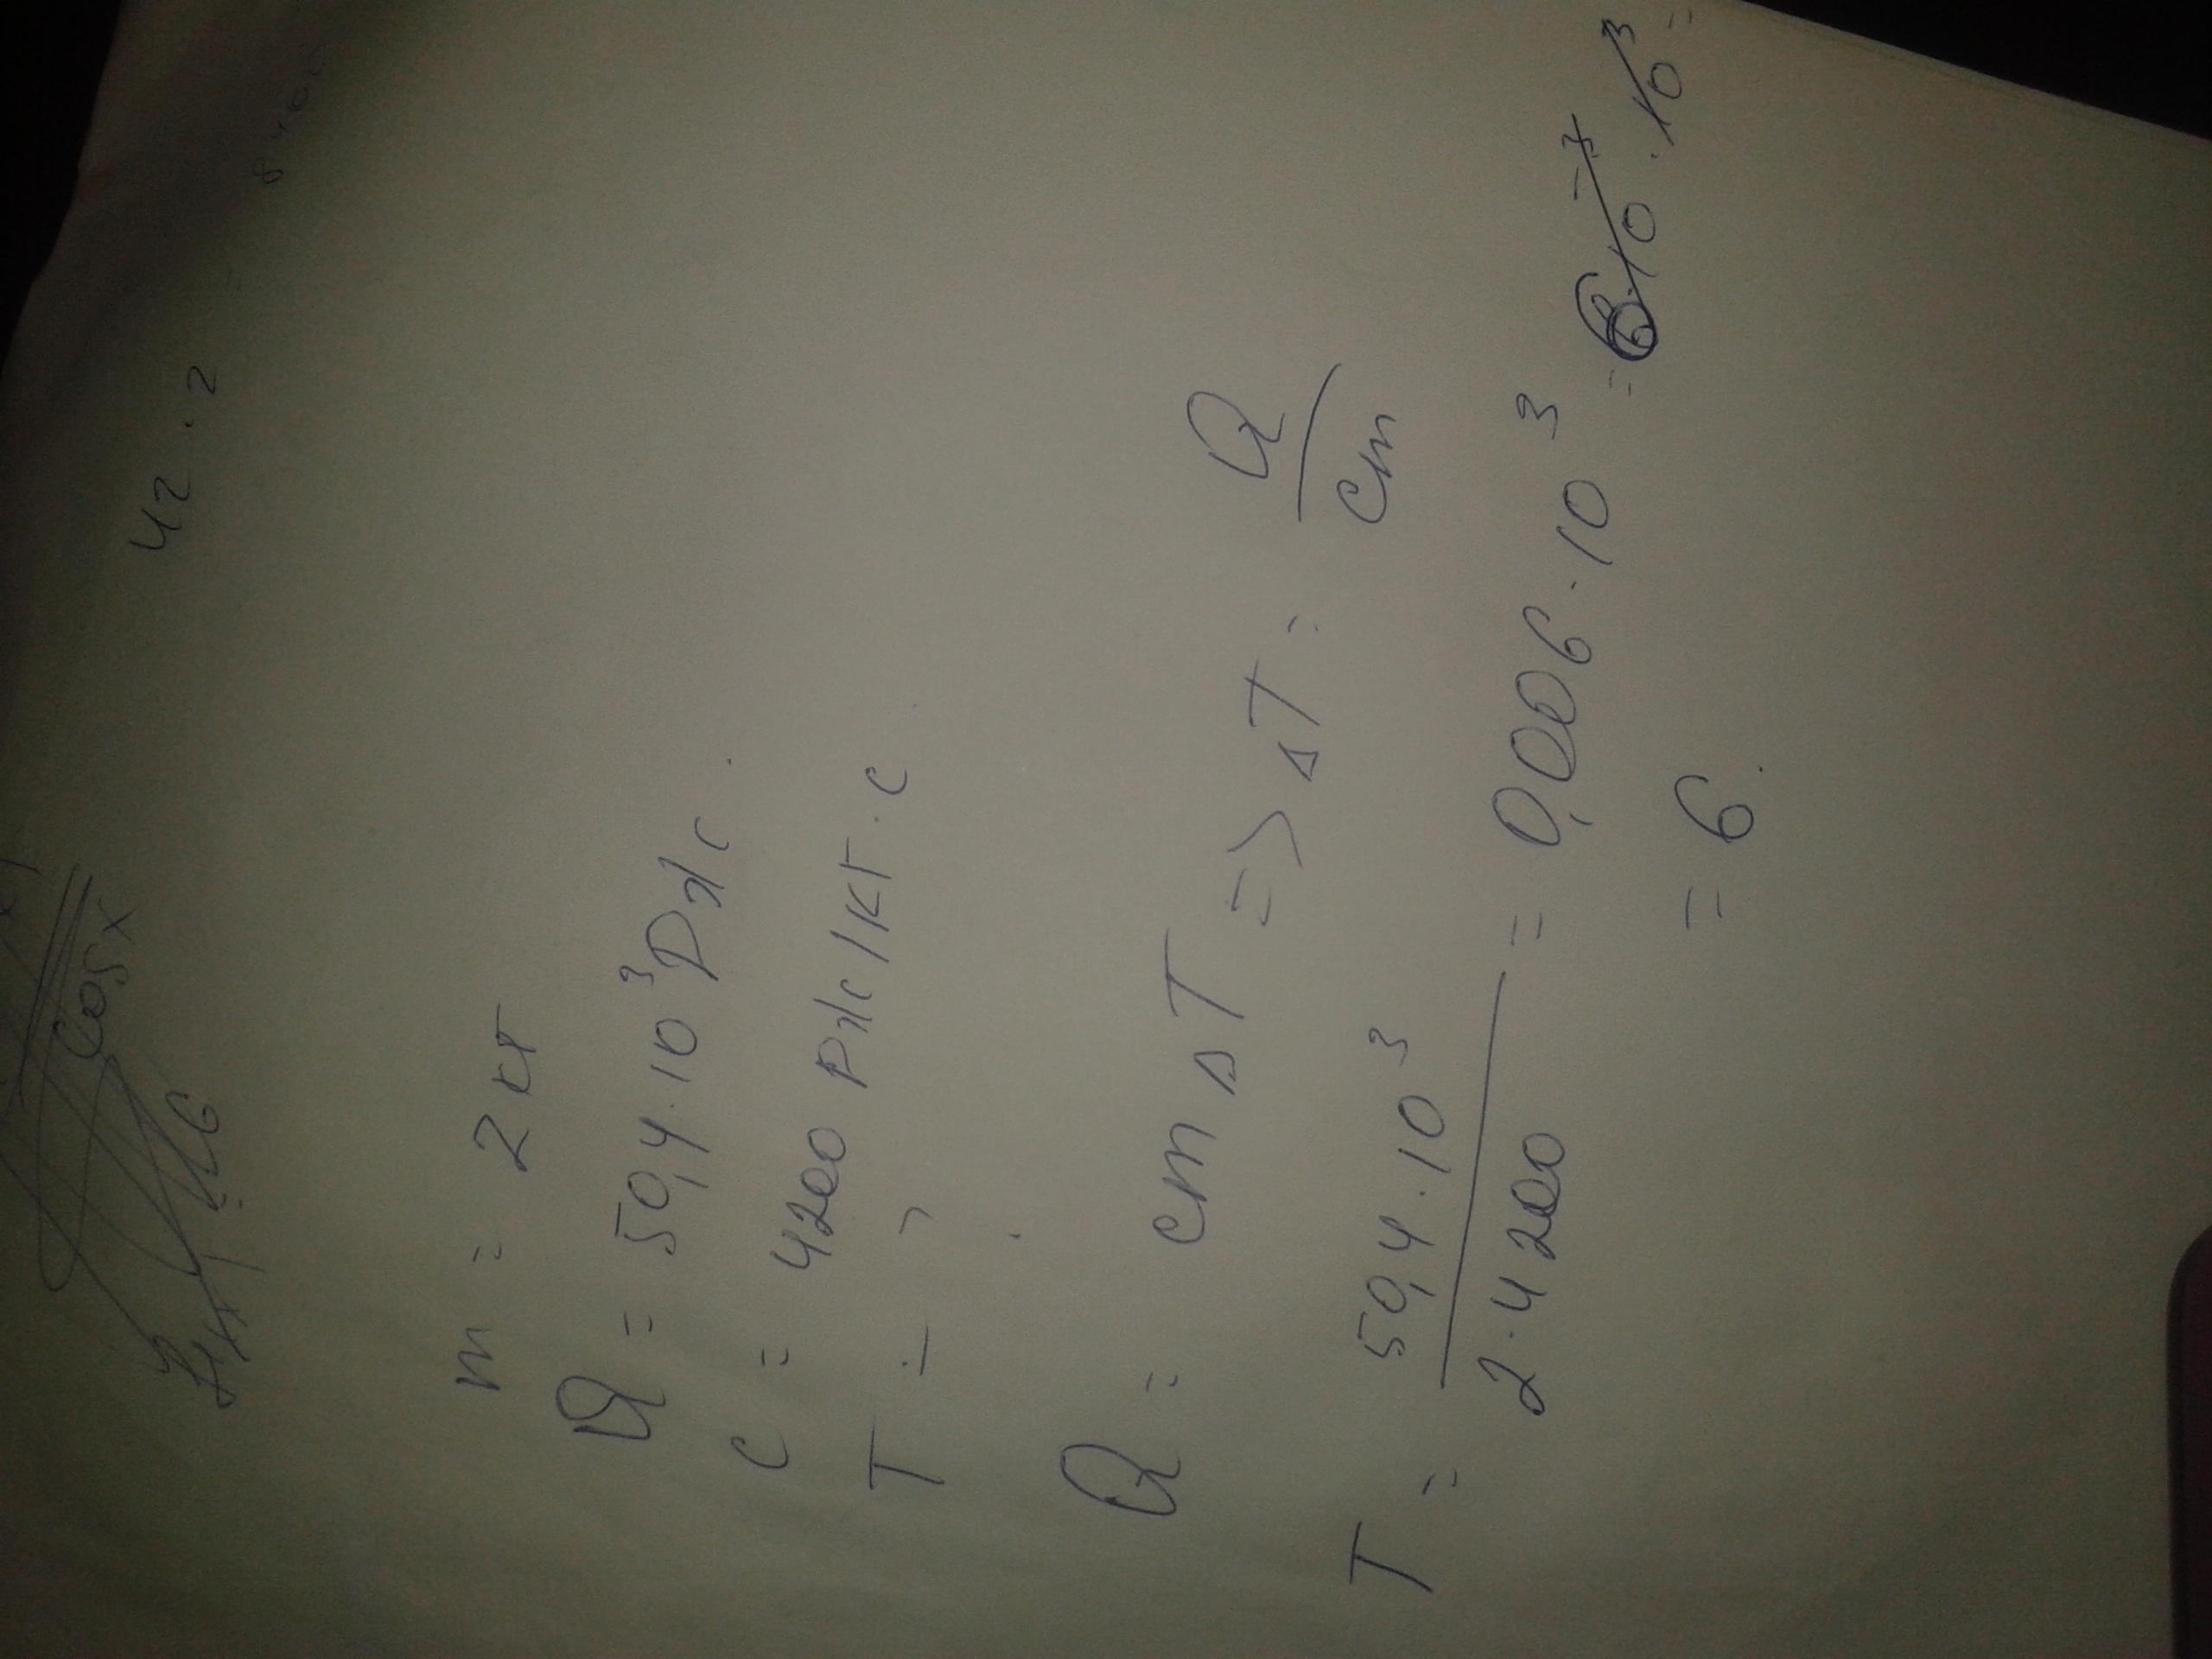 cosx
42 · 2
m = 2 кг
Q = 50,4 · 10³ Дж
c = 4200 Дж/кг · c
T - ?
Q = cm ΔT => ΔT = Q/cm
T = 50,4 · 10³ / 2 · 4200 = 0,006 · 10³ = 6 · 10⁻³ · 10³ =
= 6.